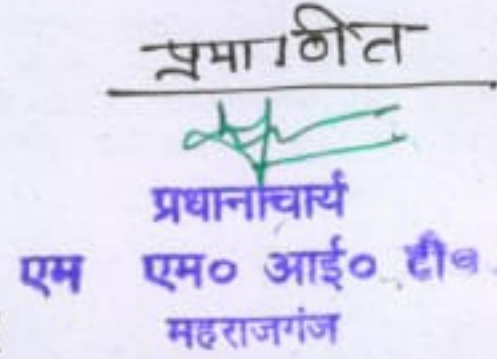 प्रमाणीत
प्रधानाचार्य
एम एम० आई० टी०
महराजगंज